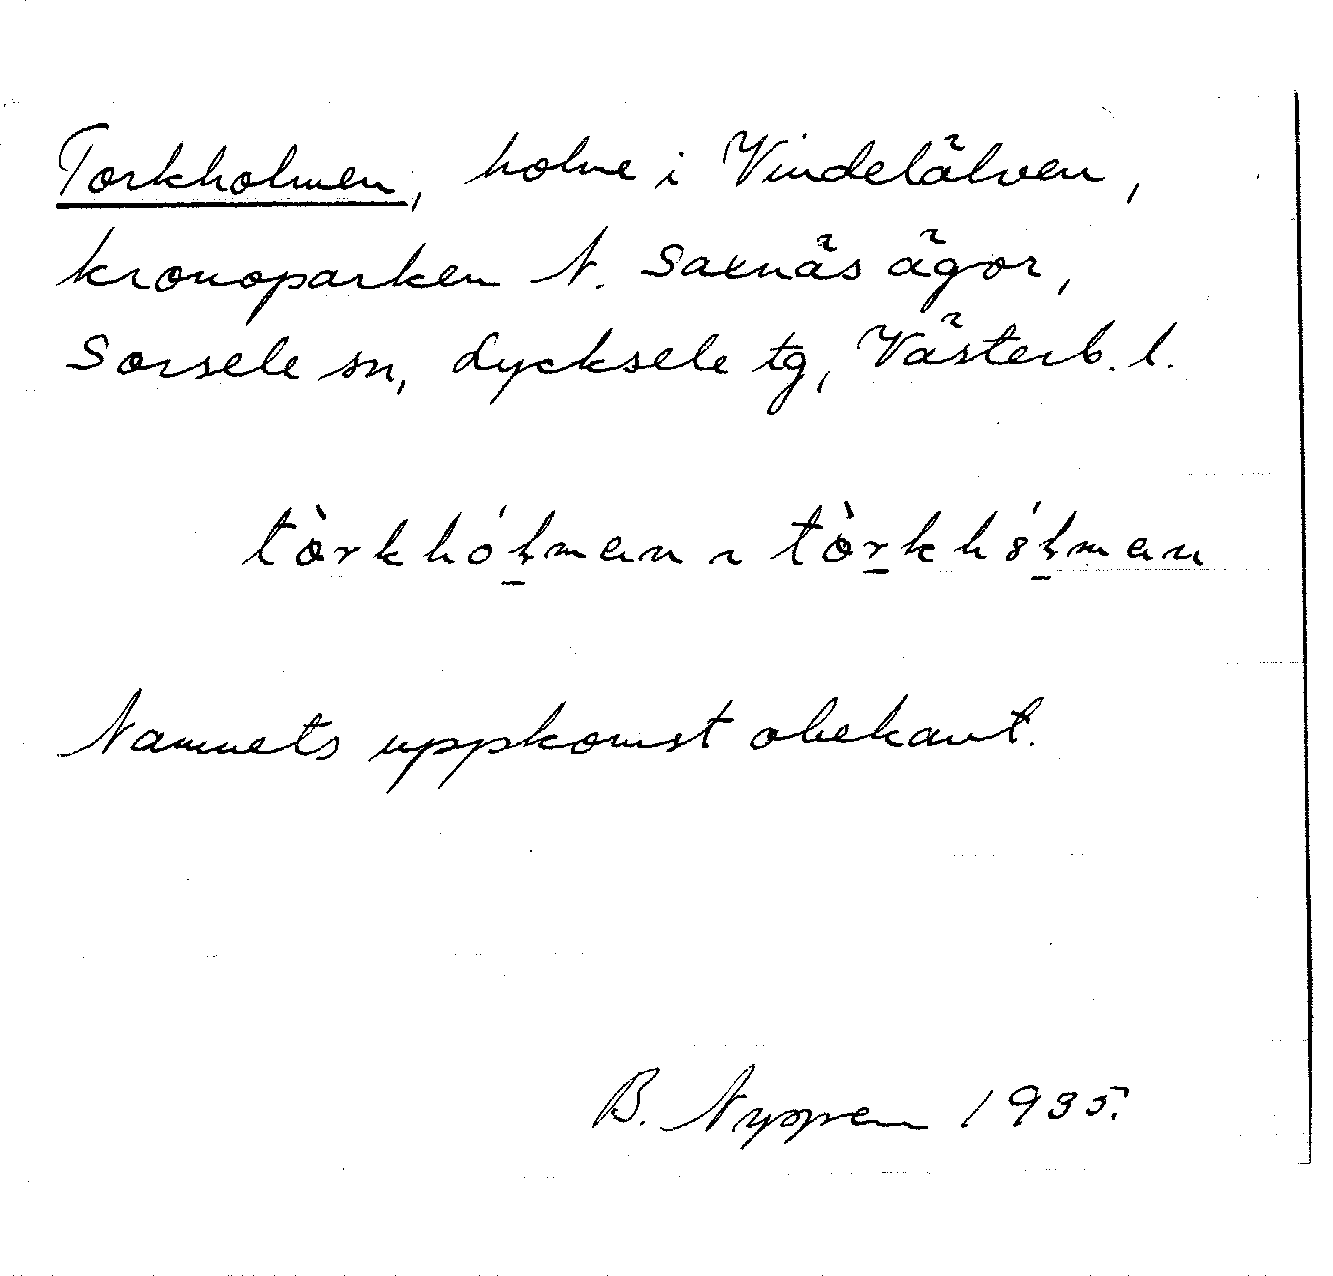 Torkholmen, holme i Vindelälven,
kronoparken N. Saxnäs ägor,
Sorsele sn, Lycksele tg, Västerb. l.
tòrkhól̠man ~ tòr̠khól̠man
Namnets uppkomst obekant.
B. Nyppen 1935.